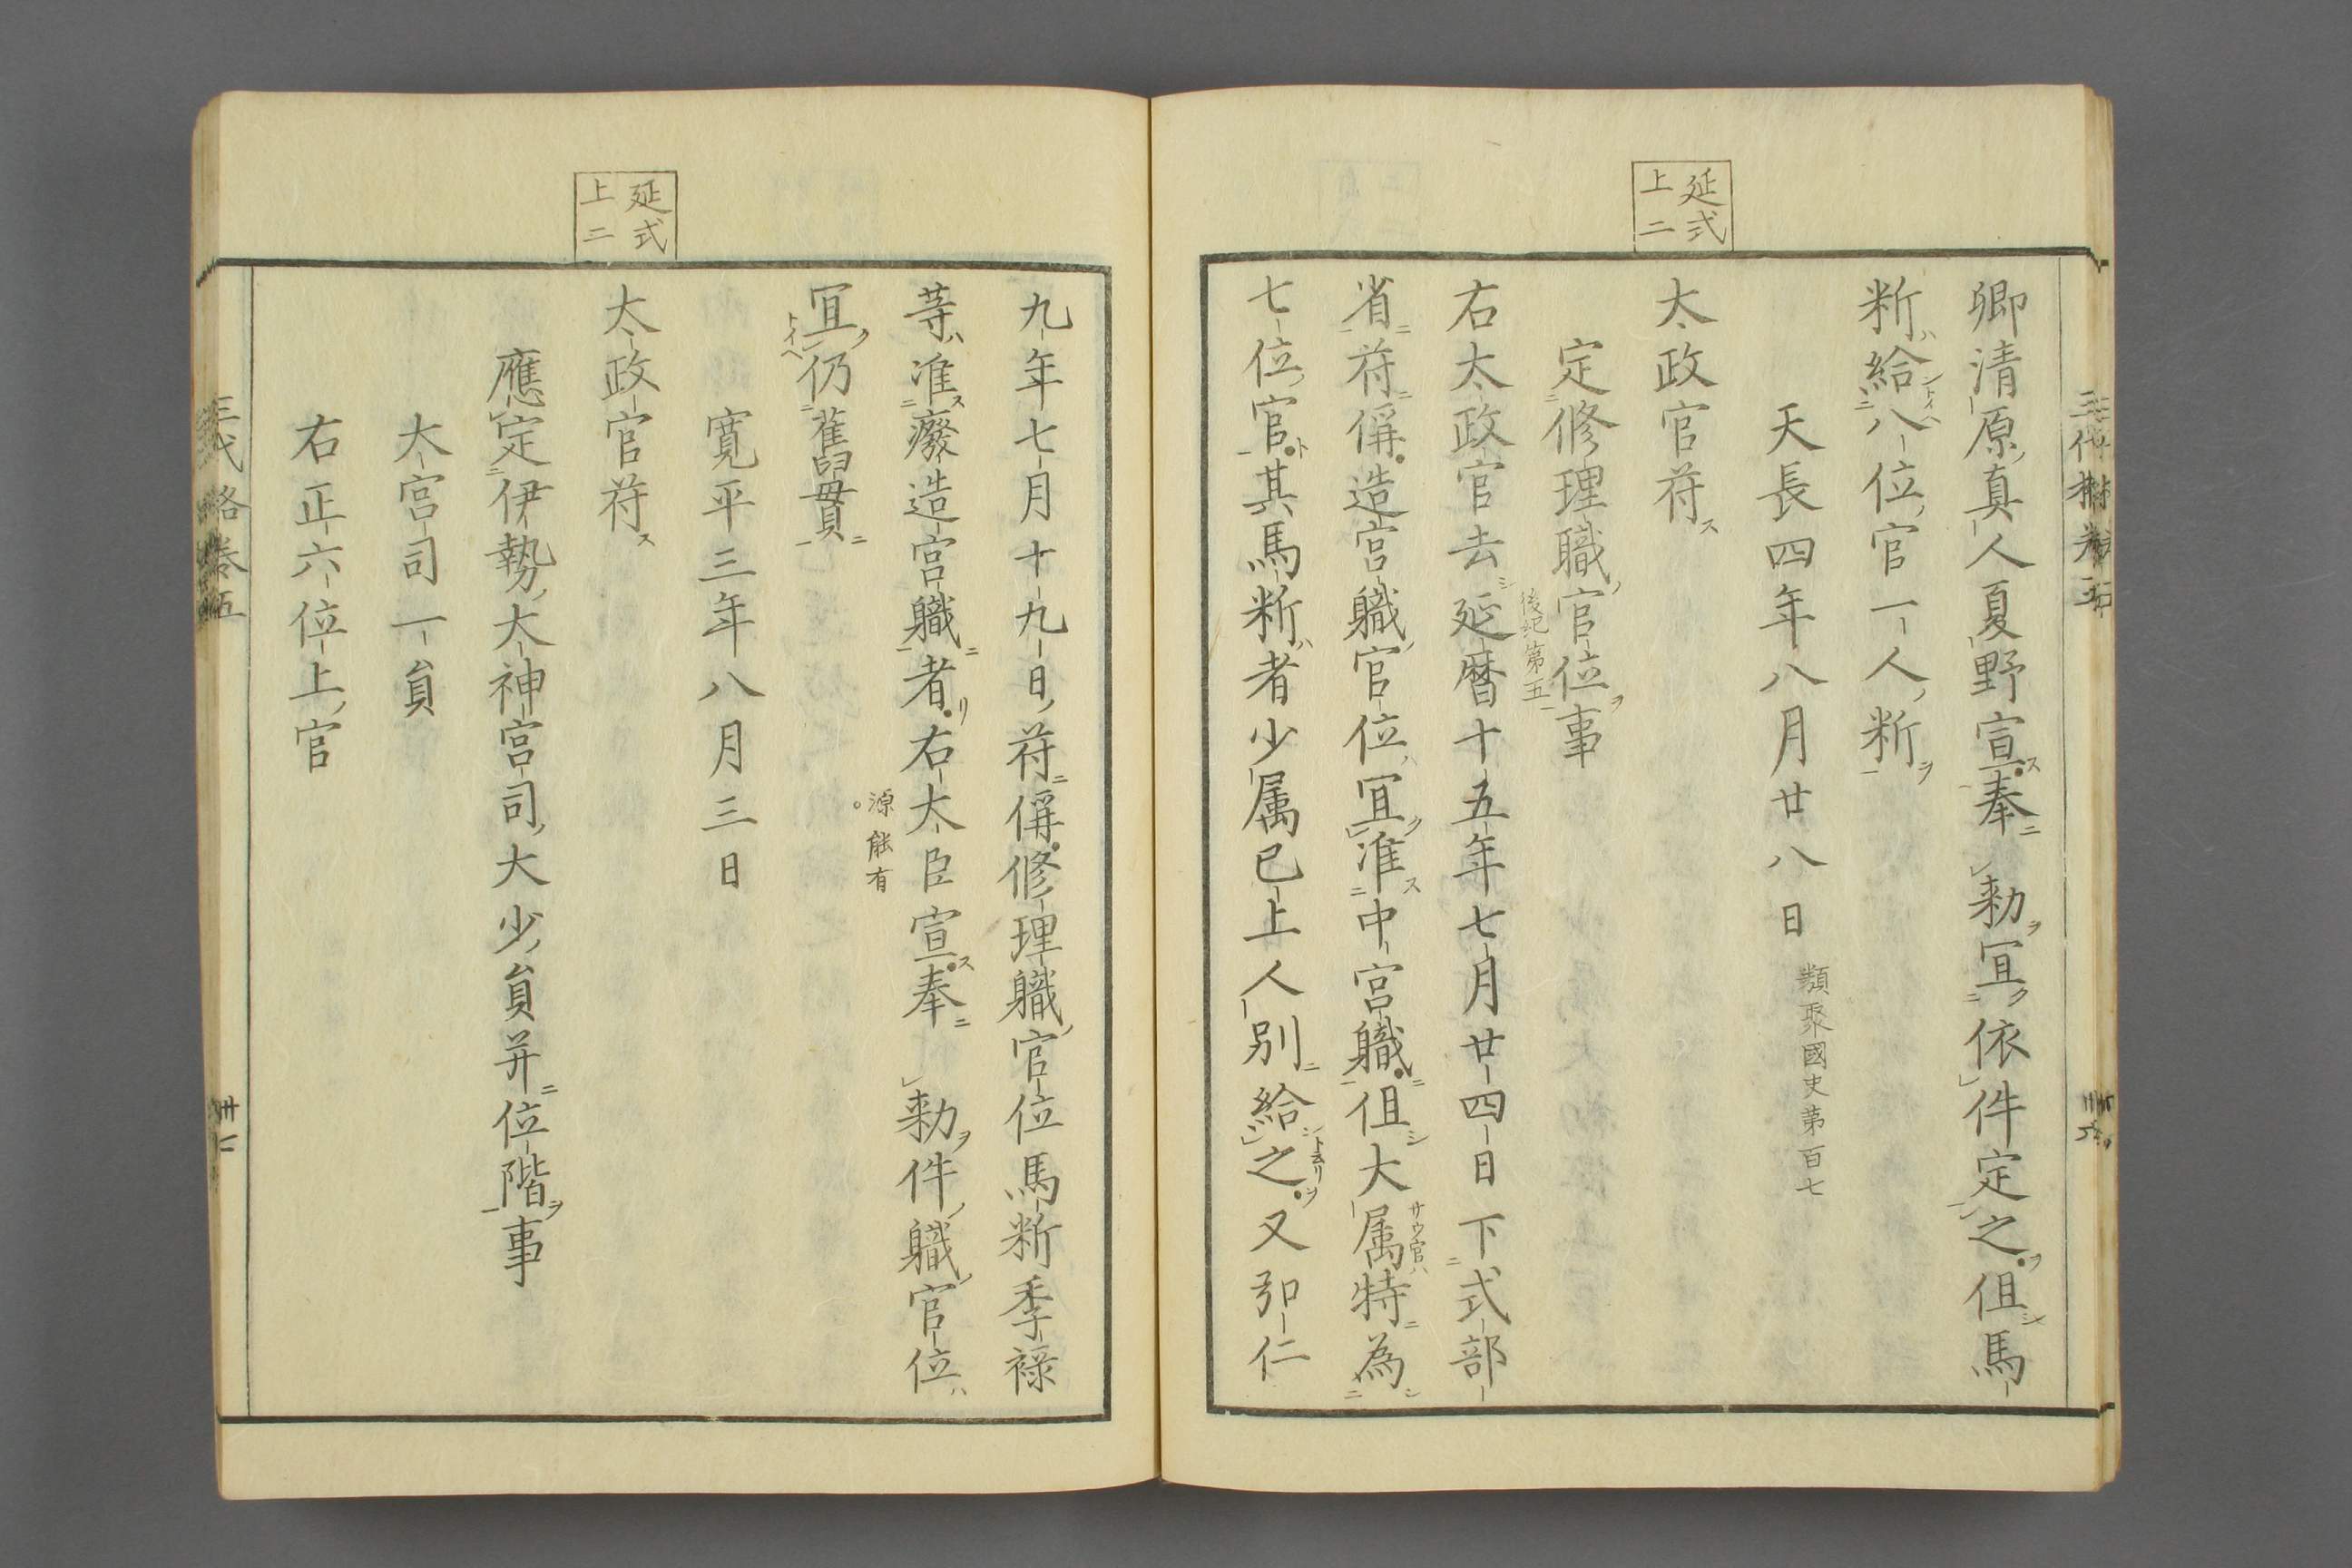 延式
上二
卿清原真人夏野宣奉　勅冝依件定之但馬
断給八位官一人断
天長四年八月廿八日
類聚國史第百七
太政官符
定修理職官位事
後紀第五
右太政官去延暦十五年七月廿四日下式部
省符偁造宮軄官位冝准中宮軄但大属特為
サウ官ハ
七位官其馬断者少属已上人別給之又弘仁
九年七月十九日符偁修理軄官位馬断季禄
等准癈造宮軄者右大臣宣奉　勅件軄官位
源能有
冝仍舊貫
寛平三年八月三日
延式
上二
太政官符
應定伊勢大神宮司大少負并位階事
大宮司一負
右正六位上官
三代格巻五